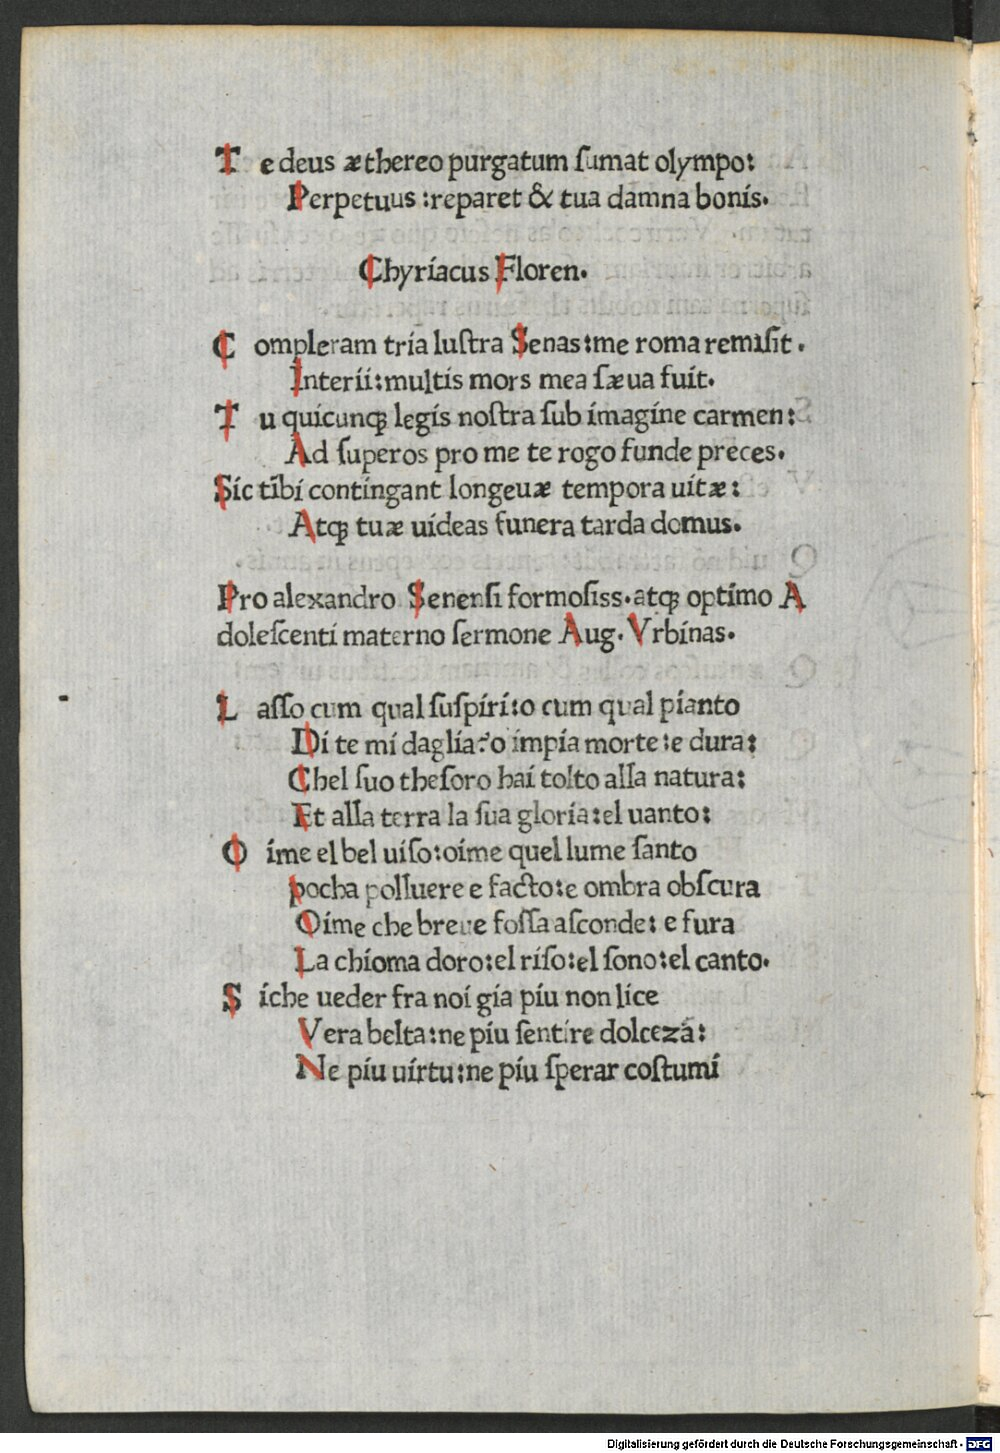 Te deus æthereo purgatum sumat olympo:
Perpetuus :reparet & tua damna bonis.
Chyriacus Floren.
Compleram tria lustra Senas:me roma remisit.
Interii:multis mors mea sæua fuit.
Tu quicunqꝫ legis nostra sub imagine carmen:
Ad superos pro me te rogo funde preces.
Sic tibi contingant longeuæ tempora uitæ:
Atqꝫ tuæ uideas funera tarda domus.
Pro alexandro Senensi formosiss.atqꝫ optimo A
dolescenti materno sermone Aug. Vrbinas.
Lasso cum qual suspiri:o cum qual pianto
Di te mi daglia:o impia morte:e dura:
Chel suo thesoro hai tolto alla natura:
Et alla terra la sua gloria:el uanto:
Oime el bel uiso:oime quel lume santo
pocha polluere e facto:e ombra obscura
Oime che breue fossa asconde: e fura
La chioma doro:el riso:el sono:el canto.
Siche ueder fra noi gia piu non lice
Vera belta:ne piu sentire dolceza:
Ne piu uirtu:ne piu sperar costumi
Digitalisierung gefördert durch die Deutsche Forschungsgemeinschaft - DFG